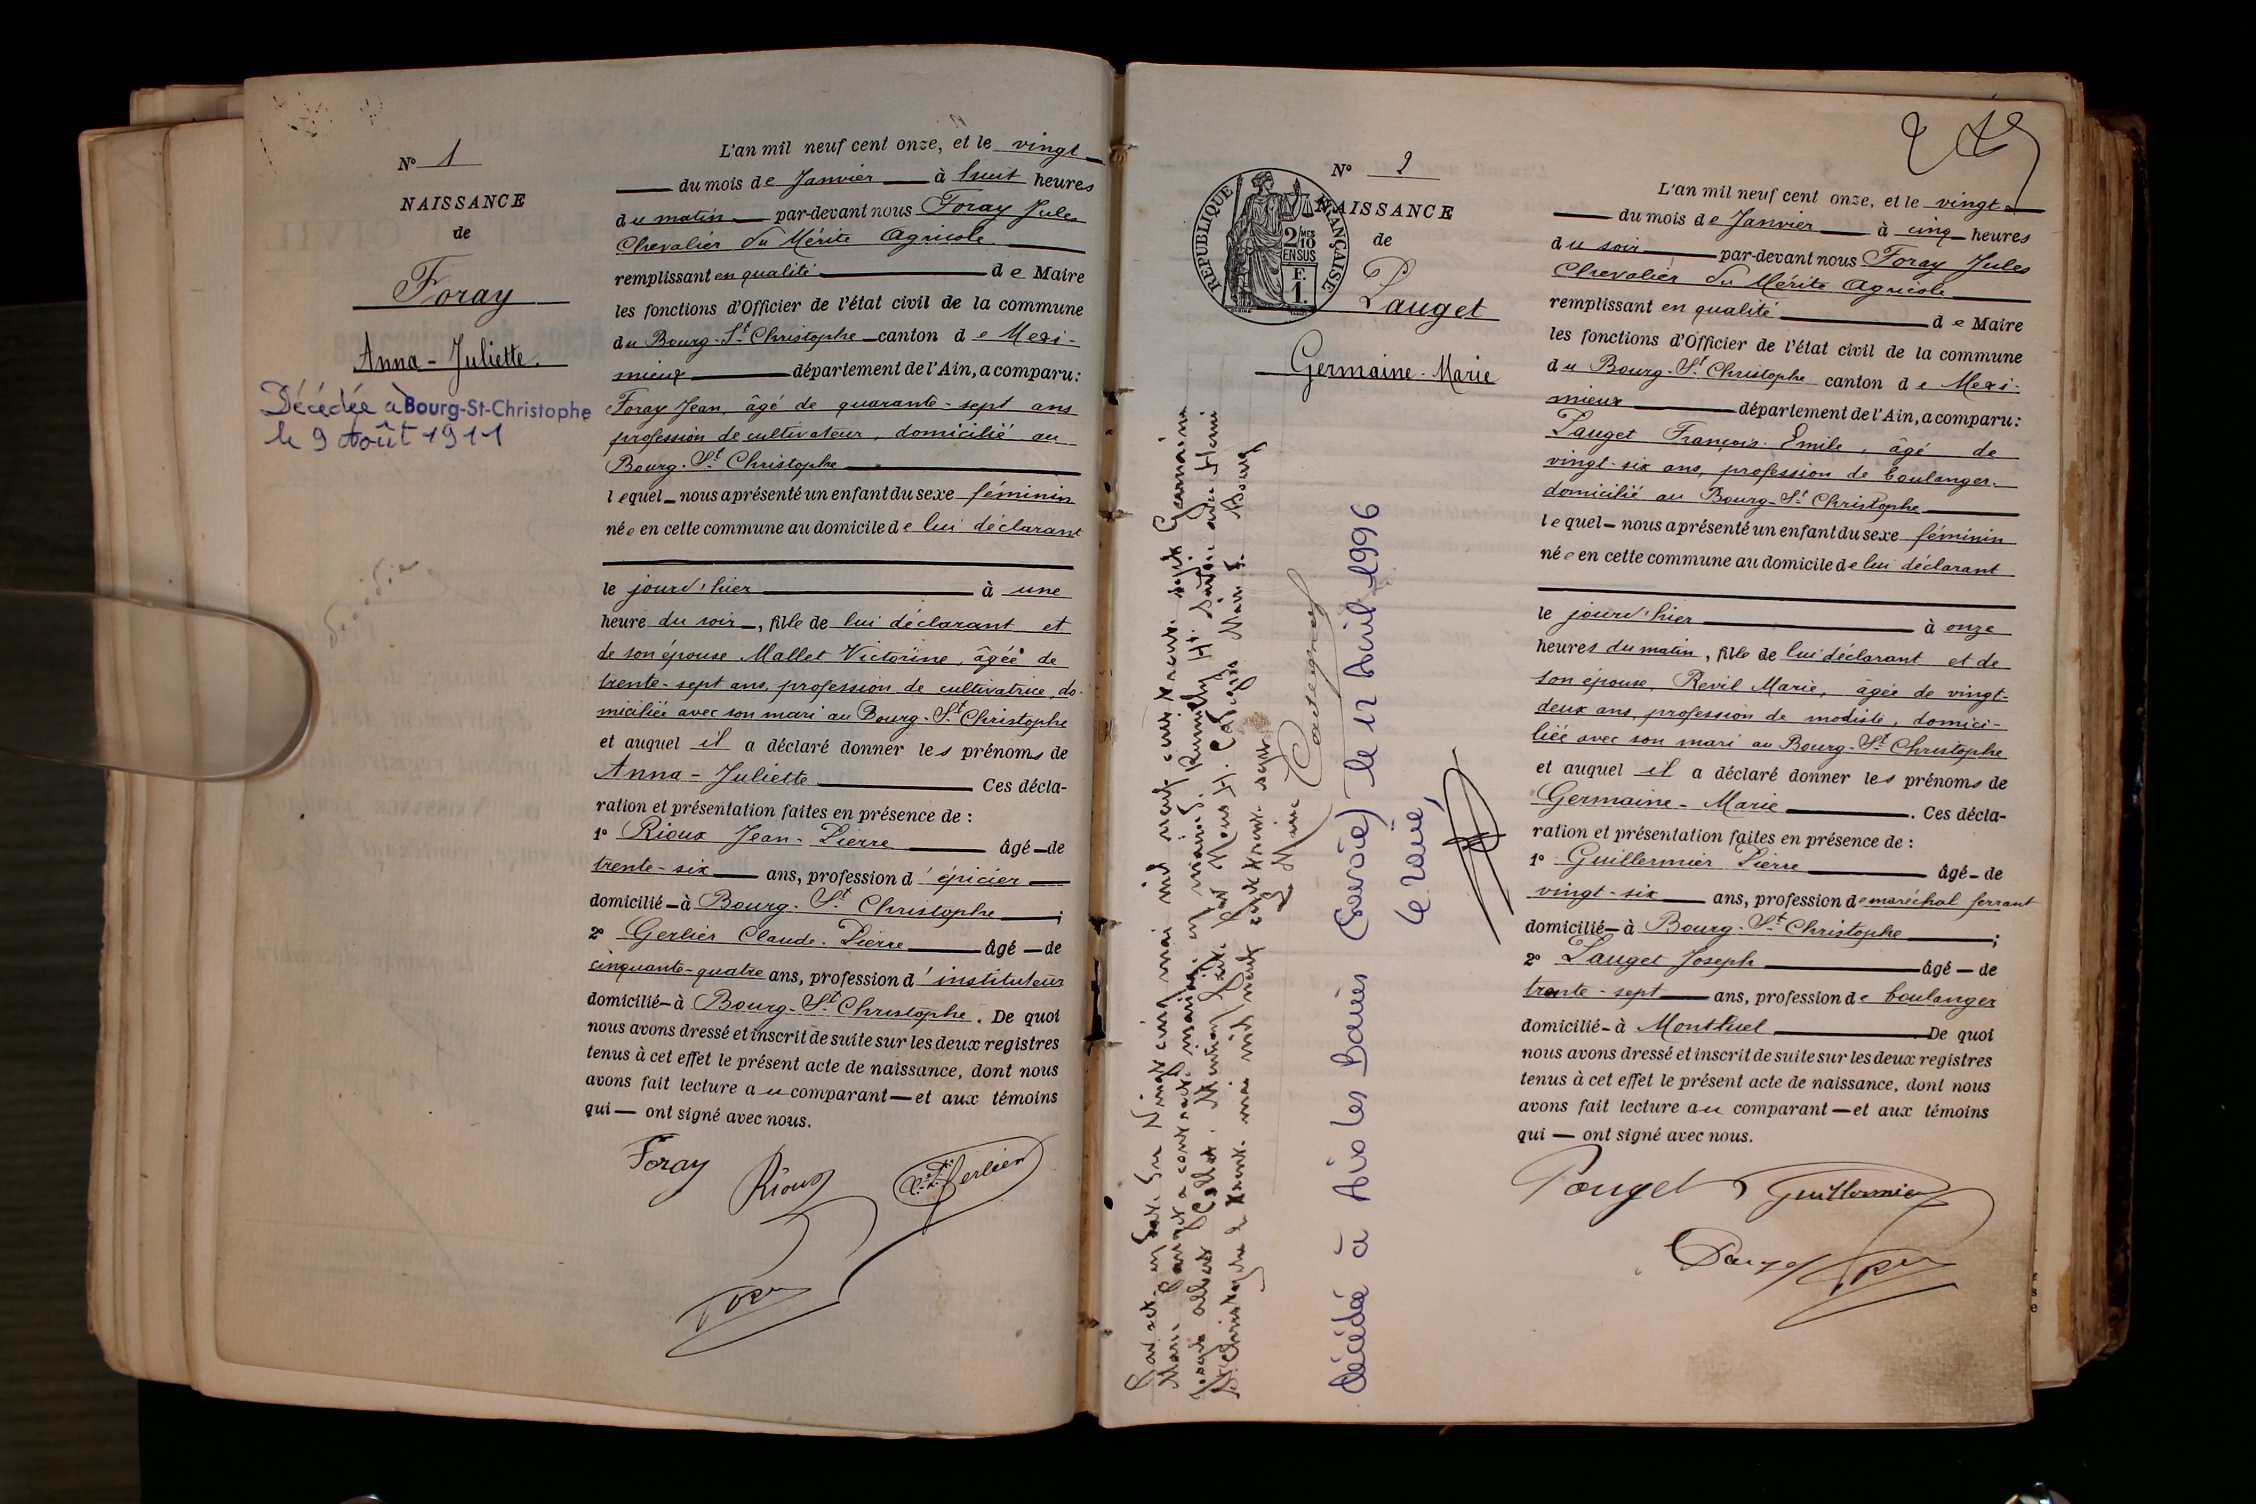 N° 1
NAISSANCE
de
Foray
Anna-Juliette.
Décédée à Bourg-St-Christophe
le 9 Août 1911
décédée
L'an mil neuf cent onze, et le vingt
du mois de Janvier à huit heures
du matin par-devant nous Foray Jules
Chevalier du Mérite Agricole
remplissant en qualité de Maire
les fonctions d'Officier de l'état civil de la commune
du Bourg-St-Christophe canton de Mexi-
mieux département de l'Ain, a comparu:
Foray Jean, âgé de quarante-sept ans
profession de cultivateur, domicilié au
Bourg-St-Christophe
lequel nous a présenté un enfant du sexe féminin
née en cette commune au domicile de lui déclarant
le jourd'hier à une
heure du soir, fille de lui déclarant et
de son épouse Mallet Victorine, âgée de
trente-sept ans, profession de cultivatrice, do-
miciliée avec son mari au Bourg-St-Christophe
et auquel il a déclaré donner les prénoms de
Anna-Juliette Ces décla-
ration et présentation faites en présence de :
1° Rioux Jean-Pierre âgé de
trente-six ans, profession d'épicier
domicilié à Bourg-St Christophe ;
2° Gerlier Claude-Pierre âgé de
cinquante-quatre ans, profession d'instituteur
domicilié à Bourg-St-Christophe. De quoi
nous avons dressé et inscrit de suite sur les deux registres
tenus à cet effet le présent acte de naissance, dont nous
avons fait lecture au comparant et aux témoins
qui ont signé avec nous.
Foray Rioux Gerlier
N° 2
NAISSANCE
de
Pauget
Germaine-Marie
RÉPUBLIQUE FRANÇAISE
2 MES
10
EN SUS
F.
1.
Décédée à Aix les Bains (Savoie) le 12 Avril 1996
Le Maire,
L'an mil neuf cent onze, et le vingt
du mois de Janvier à cinq heures
du soir par-devant nous Foray Jules
Chevalier du Mérite Agricole
remplissant en qualité de Maire
les fonctions d'Officier de l'état civil de la commune
du Bourg-St-Christophe canton de Mexi-
mieux département de l'Ain, a comparu:
Pauget François-Emile, âgé de
vingt-six ans, profession de boulanger,
domicilié au Bourg-St-Christophe
lequel nous a présenté un enfant du sexe féminin
née en cette commune au domicile de lui déclarant
le jourd'hier à onze
heures du matin, fille de lui déclarant et de
son épouse, Revil Marie, âgée de vingt-
deux ans, profession de modiste, domici-
liée avec son mari au Bourg-St-Christophe
et auquel il a déclaré donner les prénoms de
Germaine-Marie. Ces décla-
ration et présentation faites en présence de :
1° Guillermier Pierre âgé de
vingt-six ans, profession de maréchal ferrant
domicilié à Bourg-St-Christophe ;
2° Pauget Joseph âgé de
trente-sept ans, profession de boulanger
domicilié à Montluel De quoi
nous avons dressé et inscrit de suite sur les deux registres
tenus à cet effet le présent acte de naissance, dont nous
avons fait lecture au comparant et aux témoins
qui ont signé avec nous.
Pauget Guillermier
Pauget